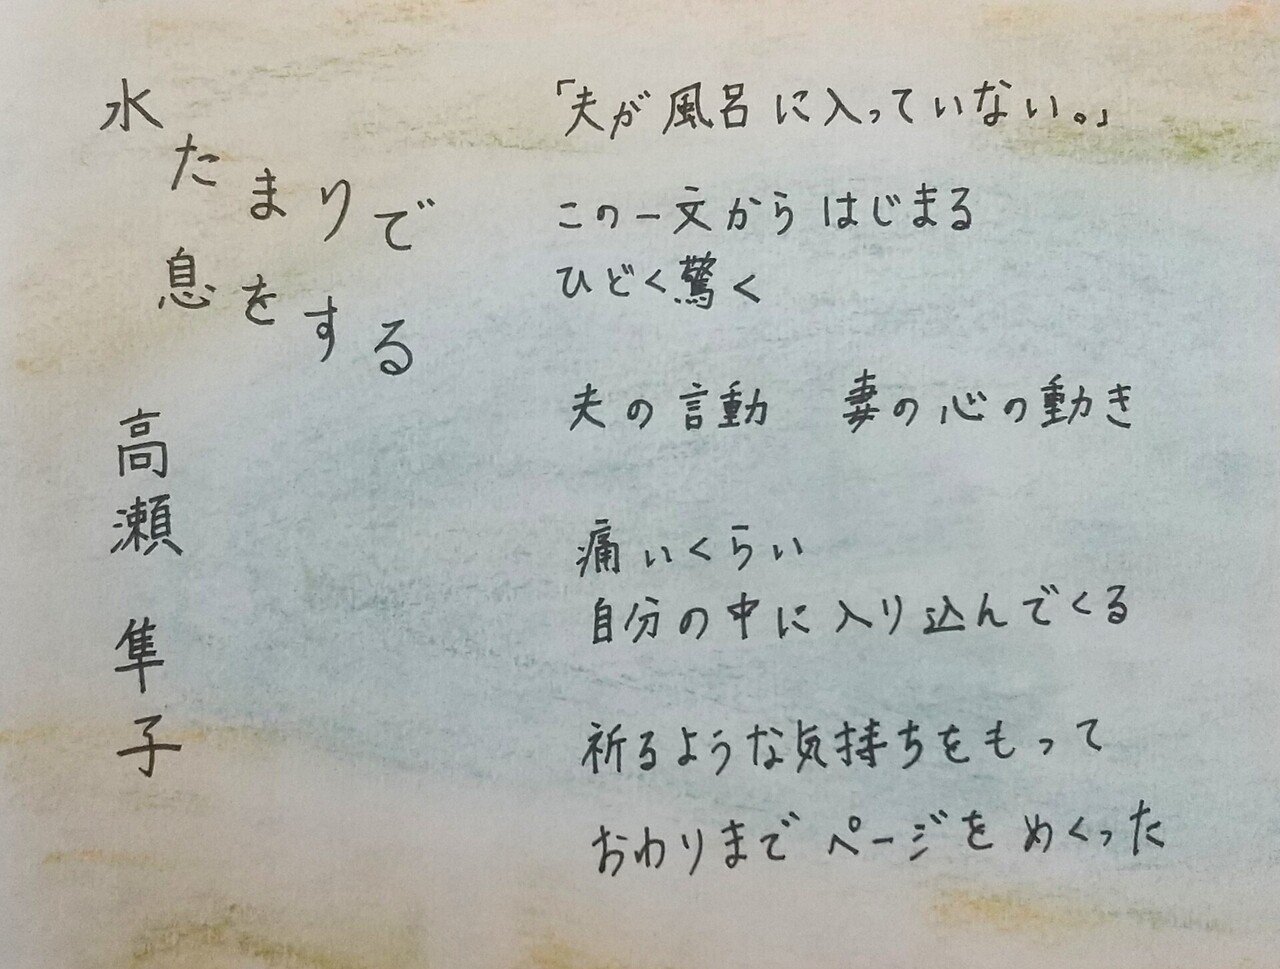 水たまりで
息をする
高瀬 隼子
「夫が風呂に入っていない。」
この一文から はじまる
ひどく驚く
夫の言動　妻の心の動き
痛いくらい
自分の中に入り込んでくる
祈るような気持ちをもって
おわりまで ページを めくった